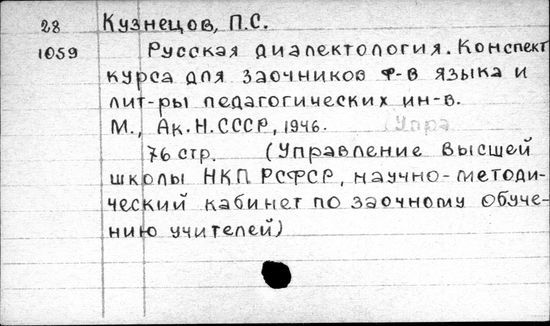 28 Кузнецов, П.С.
1059 Русская диалектология. Конспект
курса для заочников ф-в языка и
лит-ры педагогических ин-в.
М., Ак.Н.СССР, 1946. (Упра
76 стр. (Управление высшей
школы НКП РСФСР, научно-методи-
ческий кабинет по заочному обуче-
нию учителей)